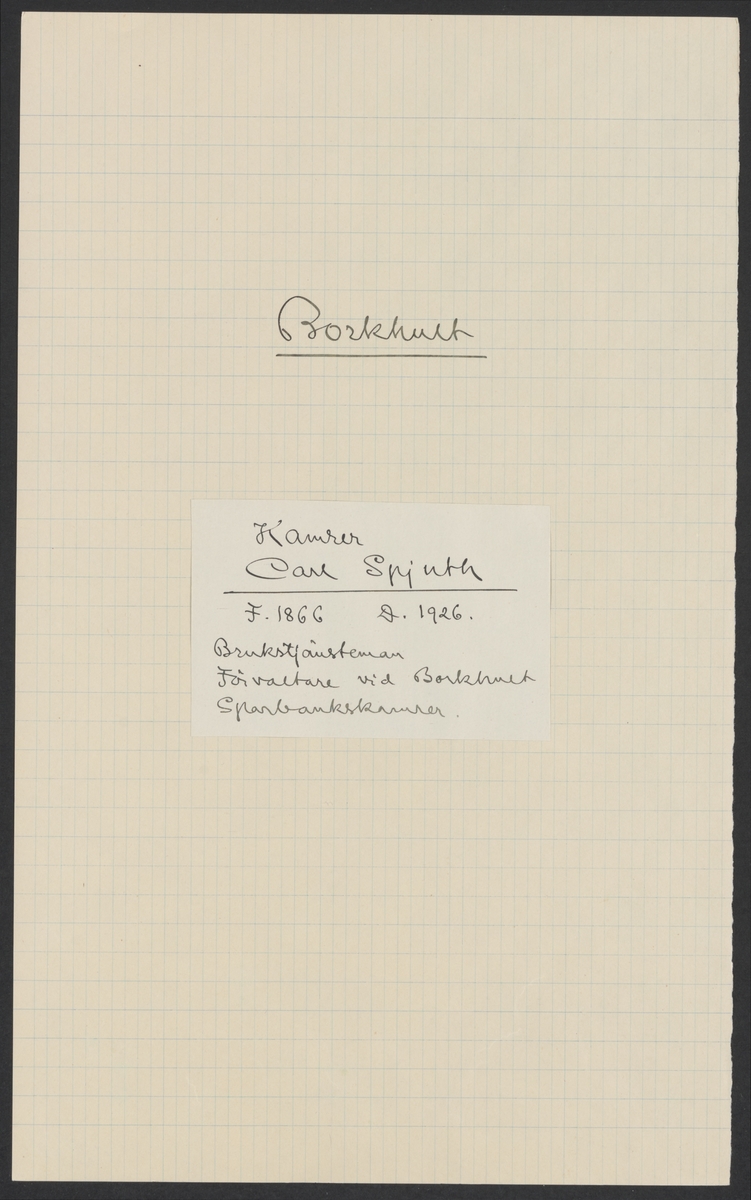 Borkhult
Kamrer
Carl Spjuth
F. 1866 D. 1926.
Brukstjänsteman
Förvaltare vid Borkhult
Sparbankskamrer.